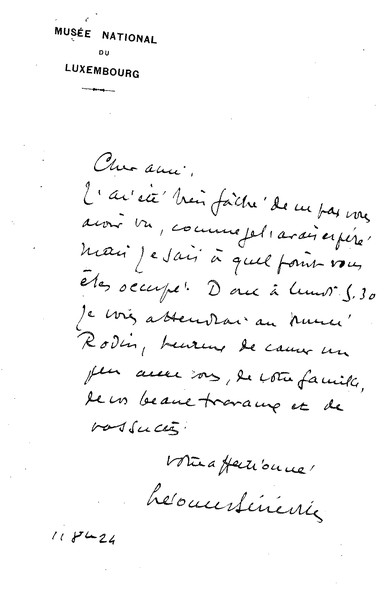 MUSÉE NATIONAL
DU
LUXEMBOURG
Cher ami,
J'ai été très fâché de ne pas vous
avoir vu, comme je l'avais espéré
mais je sais à quel point vous
êtes occupé. Donc à lundi 5.30
je vous attendrai au musée
Rodin, heureux de causer un
peu avec vous, de votre famille,
de vos beaux travaux et de
vos succès.
votre affectionné
Léonce Bénédite
11 8bre 24